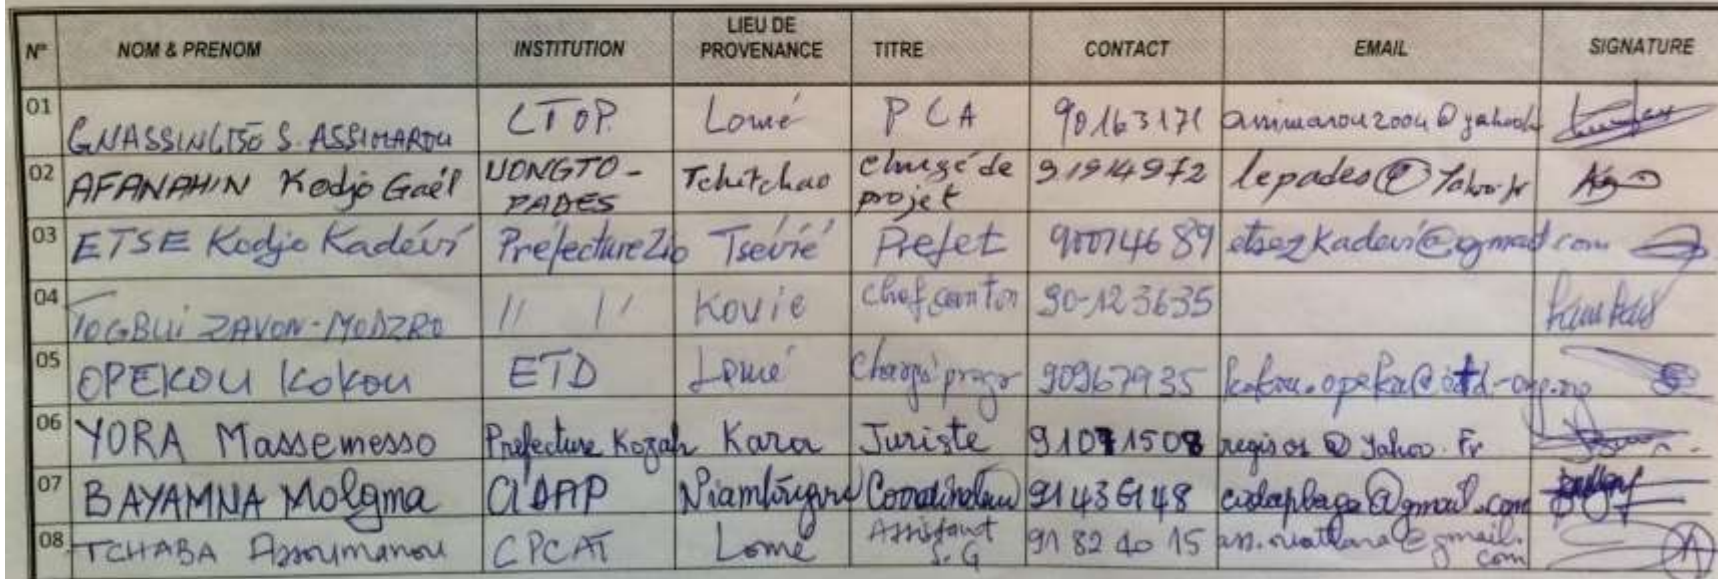 N° NOM & PRENOM INSTITUTION LIEU DE PROVENANCE TITRE CONTACT EMAIL SIGNATURE
01 S. ASSIMAROU CTOP Lomé PCA 90163171
02 AFANAHIN Kodjo Gaël UONGTO-PADES Tchitchao chargé de projet 91914972 lepades@Yahoo.fr
03 ETSE Kodjo Kadévi Préfecture Zio Tsévié Préfet 90074689 etsezkadevi@gmail.com
04 TOGBUI ZAVON-MODZRO // // Kovié Chef canton 90-123635
05 OPEKOU Kokou ETD Lomé Chargé progr 90967935
06 YORA Massemesso Prefecture Kozah Kara Juriste 91071508 @Yahoo.Fr
07 BAYAMNA Molgma CIDAP 91436148 @gmail.com
08 TCHABA Assoumanou CPCAT Lomé Assistant S.G 91 82 40 15 @gmail.com